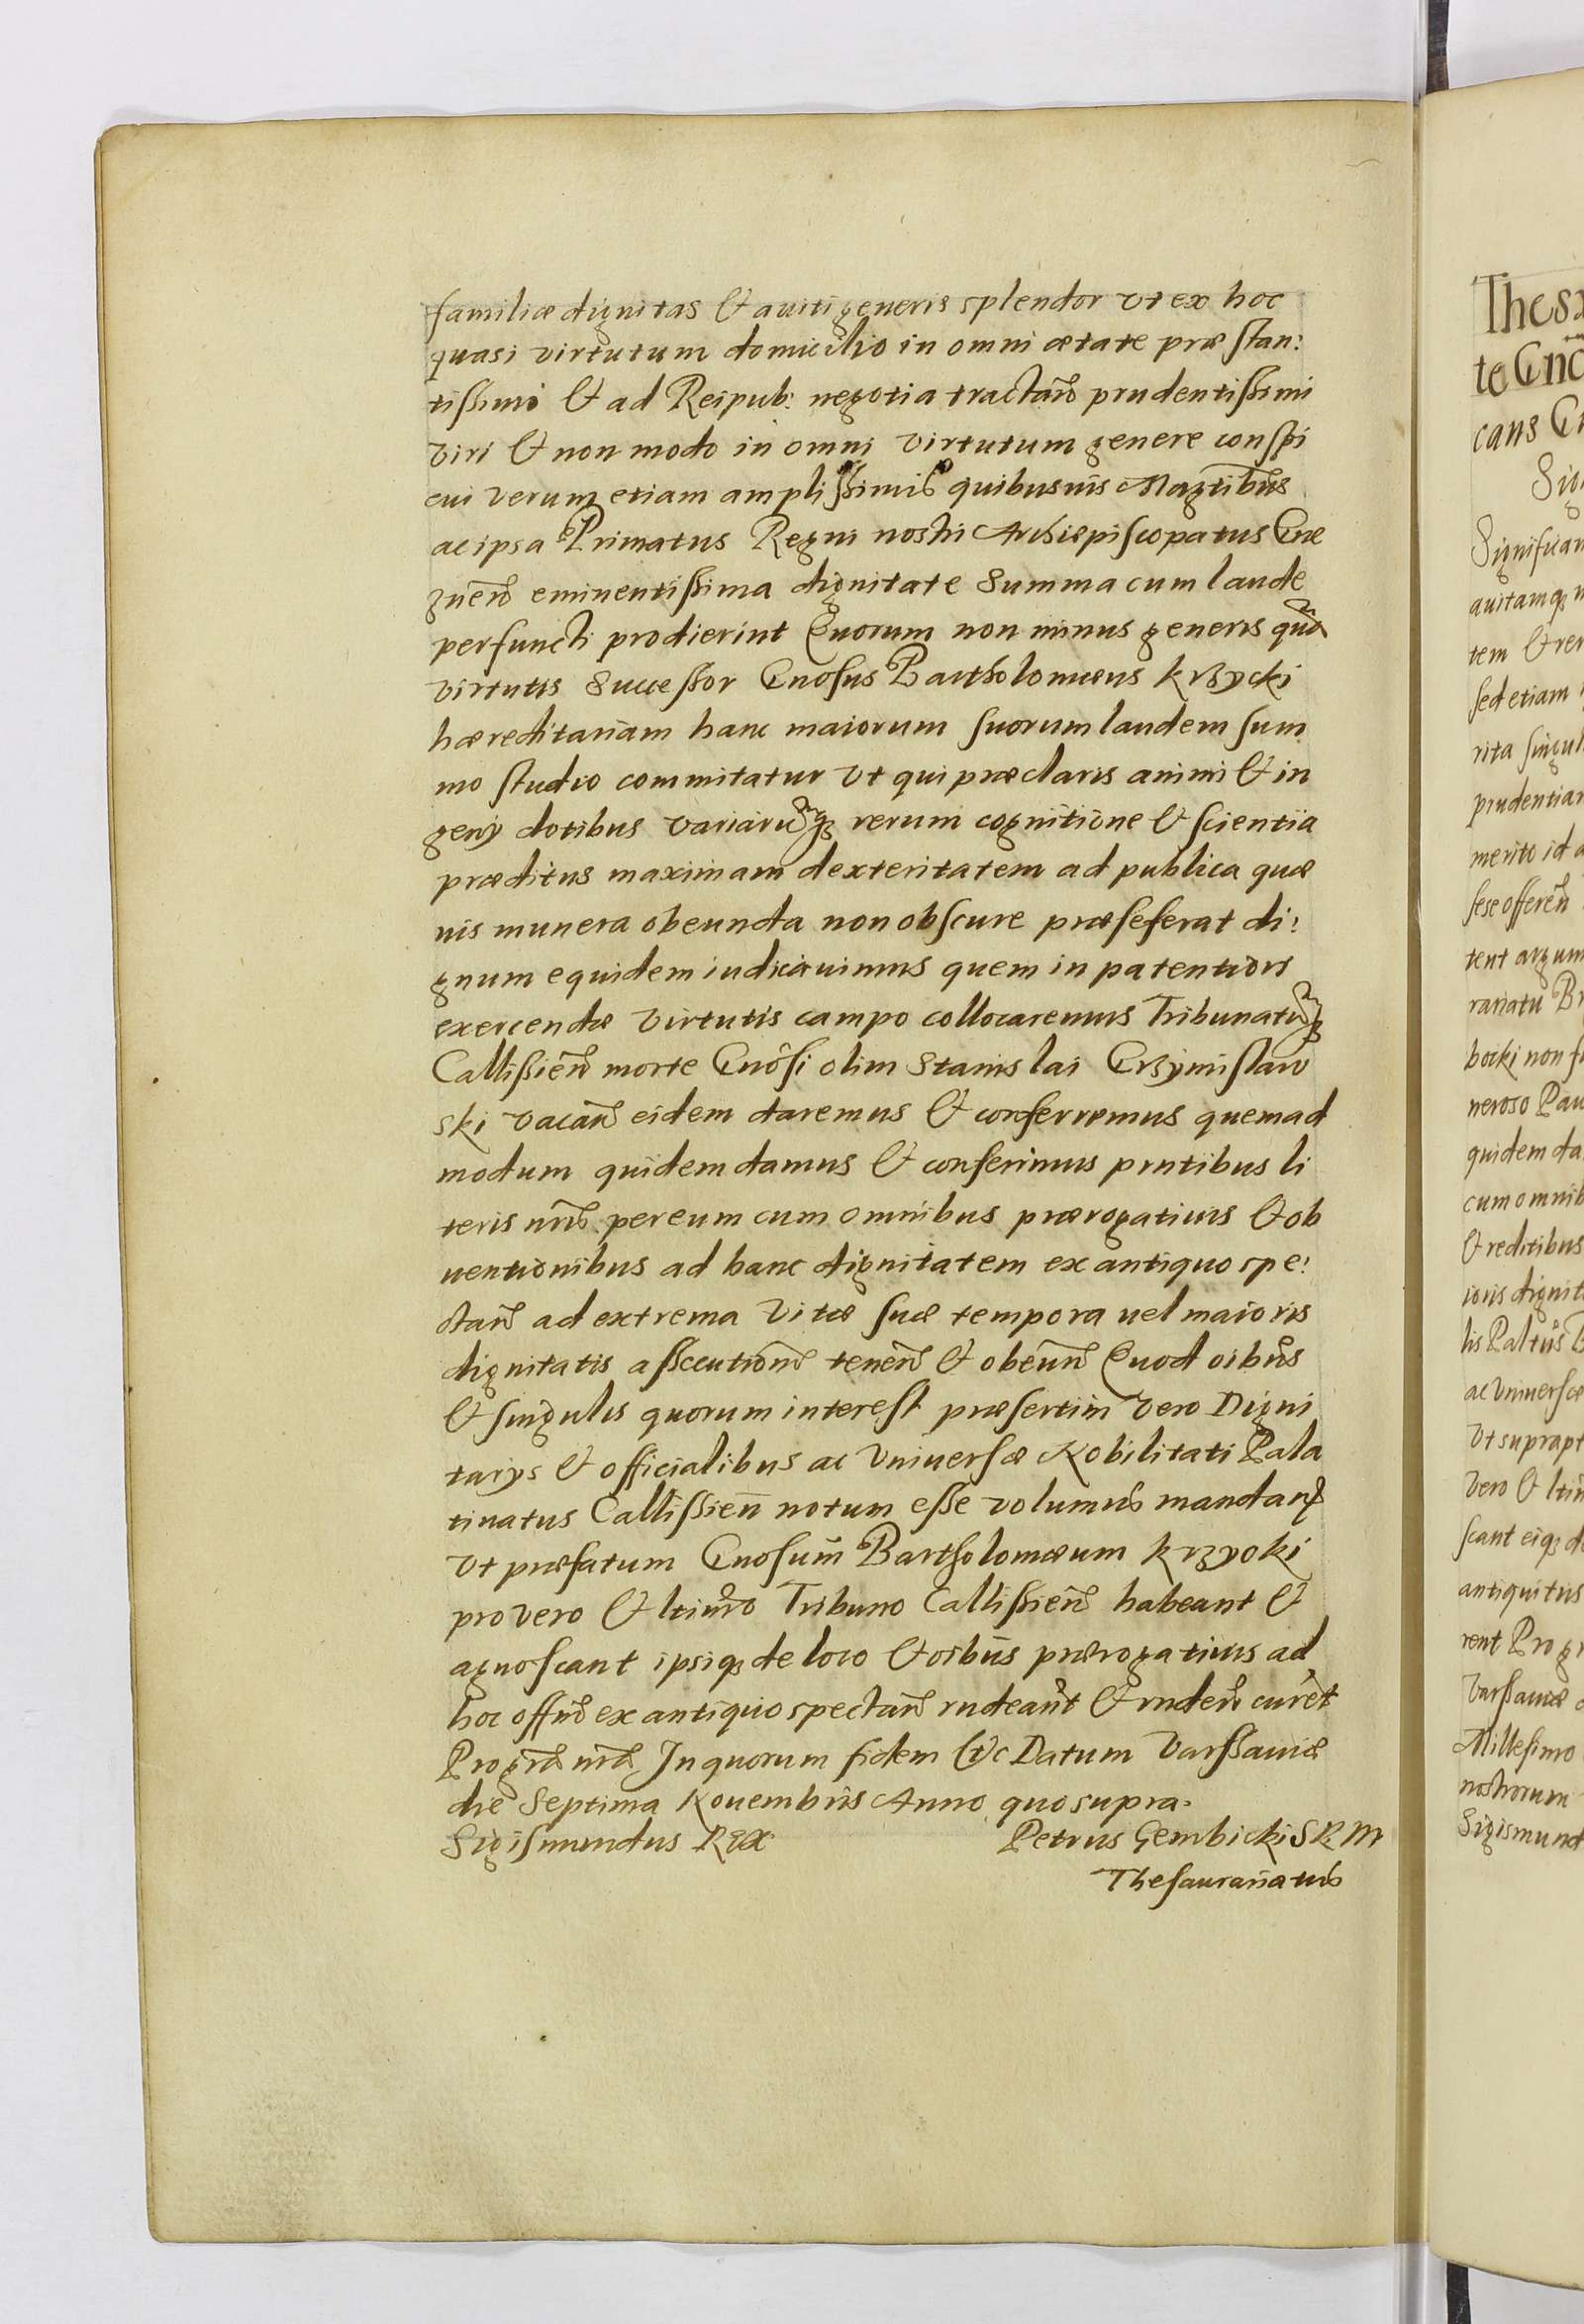 familiæ dignitas & auiti generis splendor vt ex hoc
quasi virtutum domicilio in omni ætate præstan:
tissimi & ad Reipub: negotia tractañ prudentissimi
viri & non modo in omni virtutum genere conspi
cui verum etiam amplissimis quibusuis Magtibus
ac ipsa Primatus Regni nostri Archiepiscopatus Gne
zneñ eminentissima dignitate summa cum laude
perfuncti prodierint Quorum non minus generis quã
virtutis successor Gnosus Bartholomæus Krzycki
hæreditariam hanc maiorum suorum laudem sum
mo studio commitatur vt qui præclaris animi & in
genij dotibus variarũq; rerum cognitione & scientia
præditus maximam dexteritatem ad publica quæ
uis munera obeunda non obscure præseferat di:
gnum equidem iudicauimus quem in patentiori
exercendæ virtutis campo collocaremus Tribunatũq;
Callissieñ morte Gnosi olim Stanislai Grzymislaw
ski vacañ eidem daremus & conferremus quemad
modum quidem damus & conferimus pñtibus li
teris nris per eum cum omnibus prærogatiuis & ob
uentionibus ad hanc dignitatem ex antiquo spe:
ctañ ad extrema vitæ suæ tempora uel maioris
dignitatis assecutionẽ teneñ & obeuñ Quod oibus
& singulis quorum interest præsertim vero Digni
tarijs & officialibus ac vniuersæ Nobilitati Pala
tinatus Callissieñ notum esse volumus mandañ
vt præfatum Gnosum Bartholomæum Krzycki
pro vero & ltimo Tribuno Callissieñ habeant &
agnoscant ipsiq; de loco & oibus prærogatiuis ad
hoc offiũ ex antiquo spectañ rndeant & rnderi curẽt
Pro grã nrã In quorum fidem &c Datum Varssauiæ
die Septima Nouembris Anno quo supra.
Sigismundus Rex
Petrus Gembicki S R M
Thesaurariatus
Thes
te Gno
cans
Significam
auitamq;
tem & rer
sed etiam
rita singul
prudentiam
merito id a
sese offereñ
tent argum
rariatu Br
bocki non
neroso Pau
quidem da
cum omnib
& reditibus
ioris dignit
lis Paltus
ac vniuersæ
vt suprapt
vero & ltim
scant eiq; d
antiquitus
rent Pro gr
Varssauiæ
Millesimo
nostrorum
Sigismund